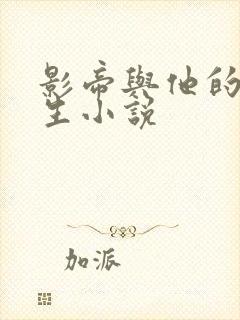 影帝與他的
生小說
加派